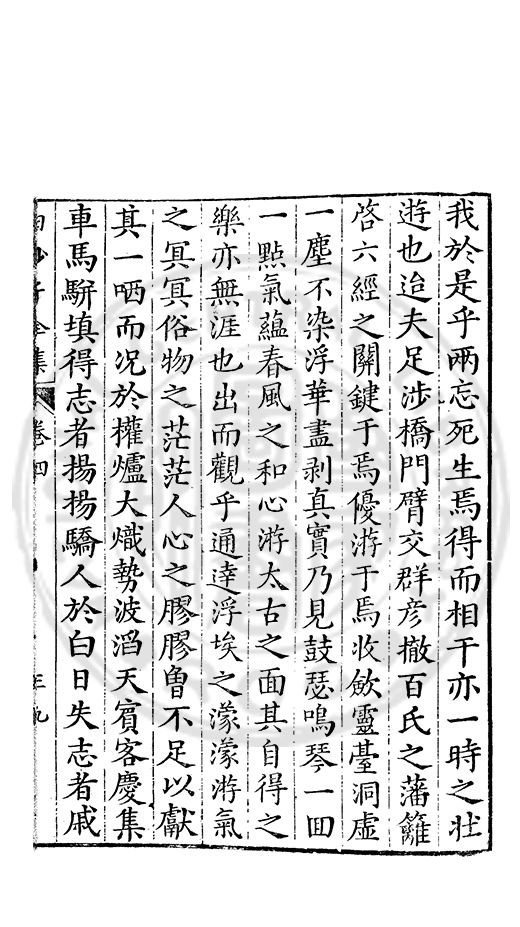 我於是乎兩忘死生焉得而相干亦一時之壯
遊也迨夫足涉橋門臂交群彦撤百氏之藩籬
啓六經之關鍵于焉優游于焉收斂靈臺洞虛
一塵不染浮華盡剥真實乃見鼓瑟鳴琴一回
一點氣藴春風之和心游太古之面其自得之
樂亦無涯也出而觀乎通逵浮埃之濛濛游氣
之冥冥俗物之茫茫人心之膠膠曾不足以獻
其一哂而况於權爐大熾勢波滔天賓客慶集
車馬駢填得志者揚揚驕人於白日失志者戚
全集 卷四